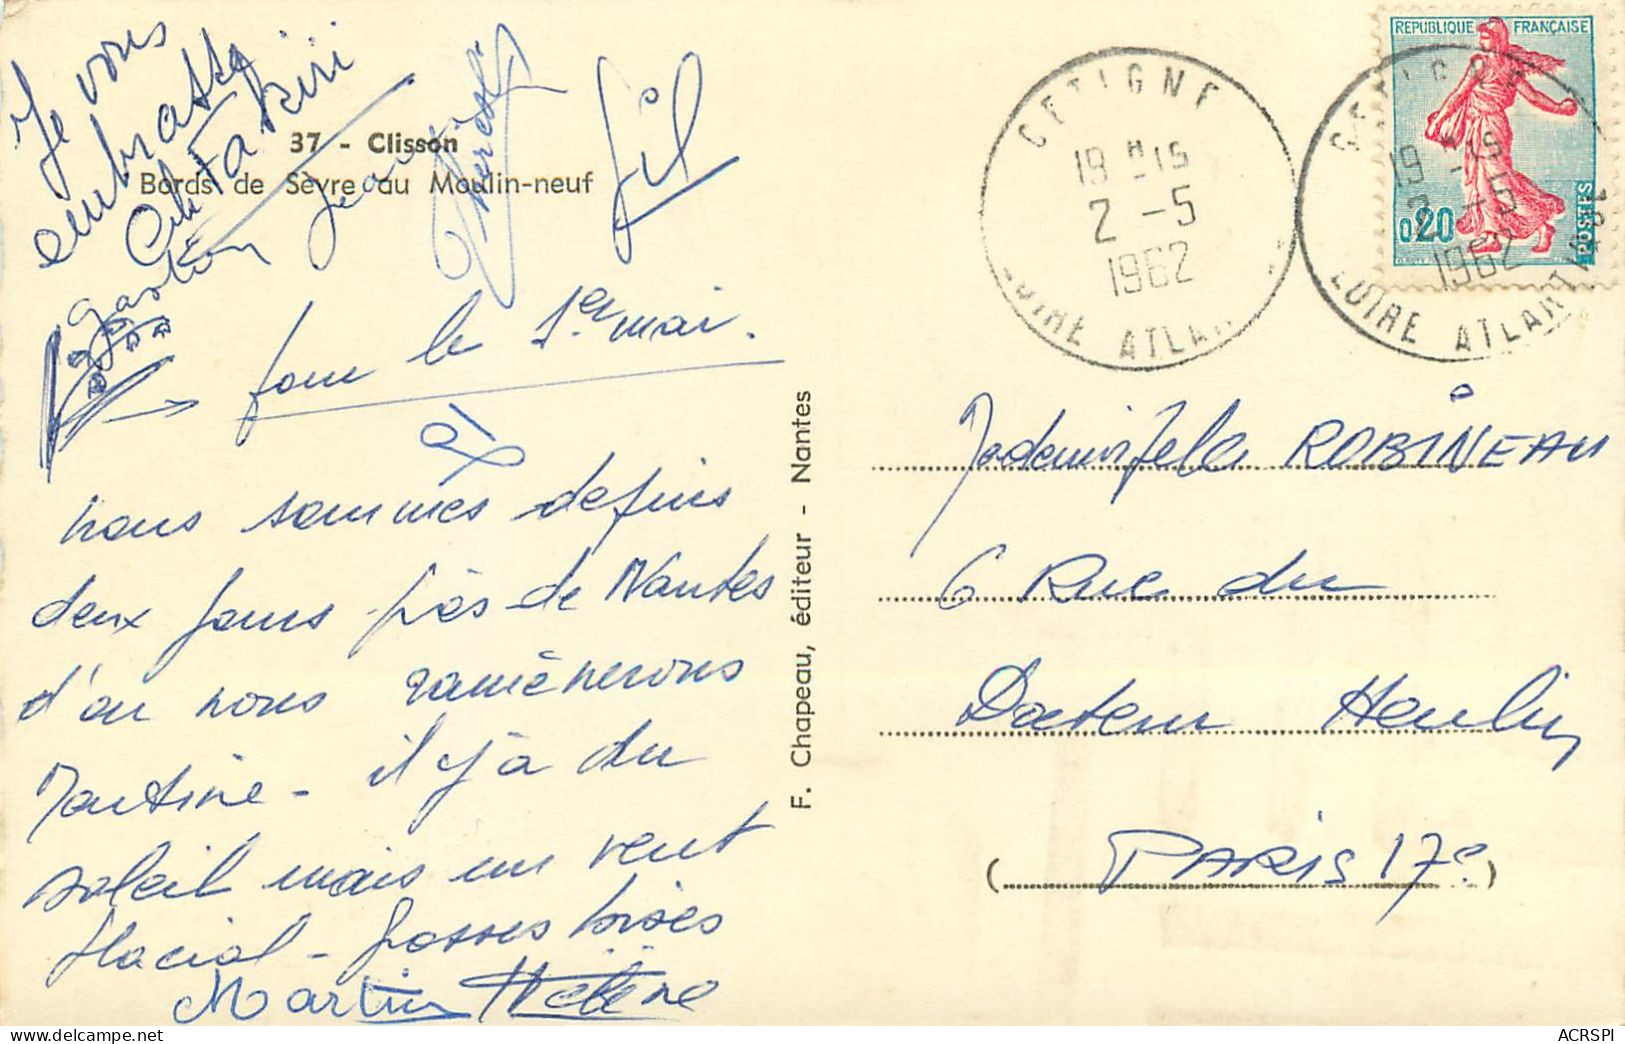 Je vous
embrasse
37 - Clisson
Bords de Sèvre au Moulin-neuf
Gaston
Jean
Gil
pour le 1er mai.
nous sommes depuis
deux jours près de Nantes
d'ou nous ramènerons
Martine - il y a du
soleil mais un vent
glacial - grosses bises
Martine Hélène
F. Chapeau, éditeur - Nantes
REPUBLIQUE FRANÇAISE
0,20
POSTES
GETIGNE
19 H15
2 - 5
1962
LOIRE ATLAN
19 H15
2 - 5
1962
LOIRE ATLANTIQUE
Mademoiselle ROBINEAU
6 Rue du
Docteur Heulin
PARIS 17e
ACRSPI